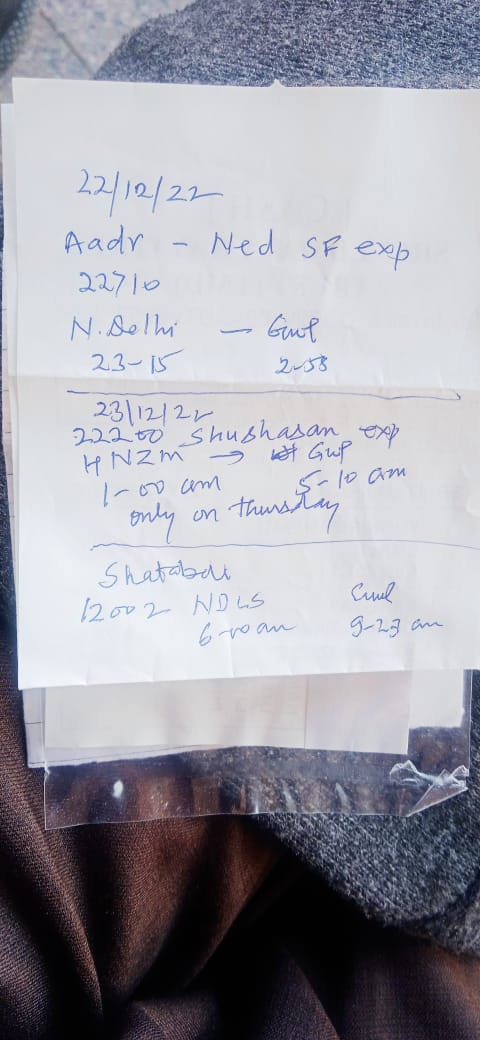 22/12/22
Aadr - Ned SF exp
22710
N. Delhi — Gwl
23-15 2-58
23/12/22
22200 Shushasan exp
HNZM → Gwl
1-00 am 5-10 am
only on thursday
Shatabdi
12002 NDLS Gwl
6-00 am 9-23 am